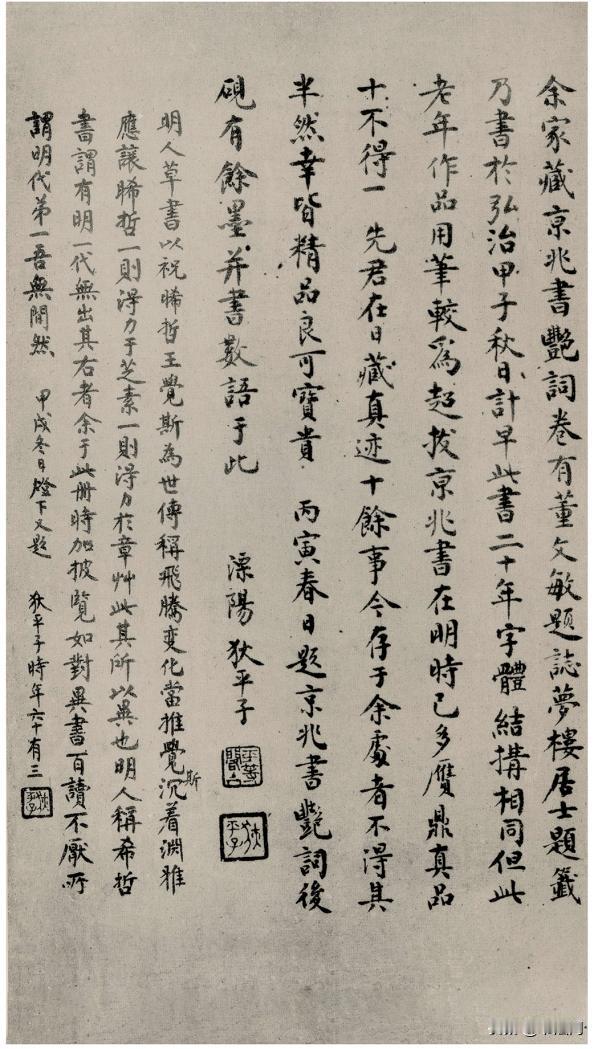 余家藏京兆書艷詞卷有董文敏題誌夢樓居士題籤
乃書於弘治甲子秋日計早此書二十年字體結搆相同但此
老年作品用筆較爲超拔京兆書在明時已多贗鼎真品
十不得一 先君在日藏真迹十餘事今存于余處者不得其
半然幸皆精品良可寶貴 丙寅春日題京兆書艷詞後
硯有餘墨并書數語于此 溧陽狄平子
明人草書以祝晞哲王覺斯為世傳稱飛騰变化當推覺斯沉着淵雅
應讓晞哲一則得力于芝素一則淂力於章艸此其所以異也明人稱希哲
書謂有明一代無出其右者余于此册時加披覽如對異書百讀不厭所
謂明代第一吾無間然 甲戌冬日燈下又題 狄平子時年六十有三